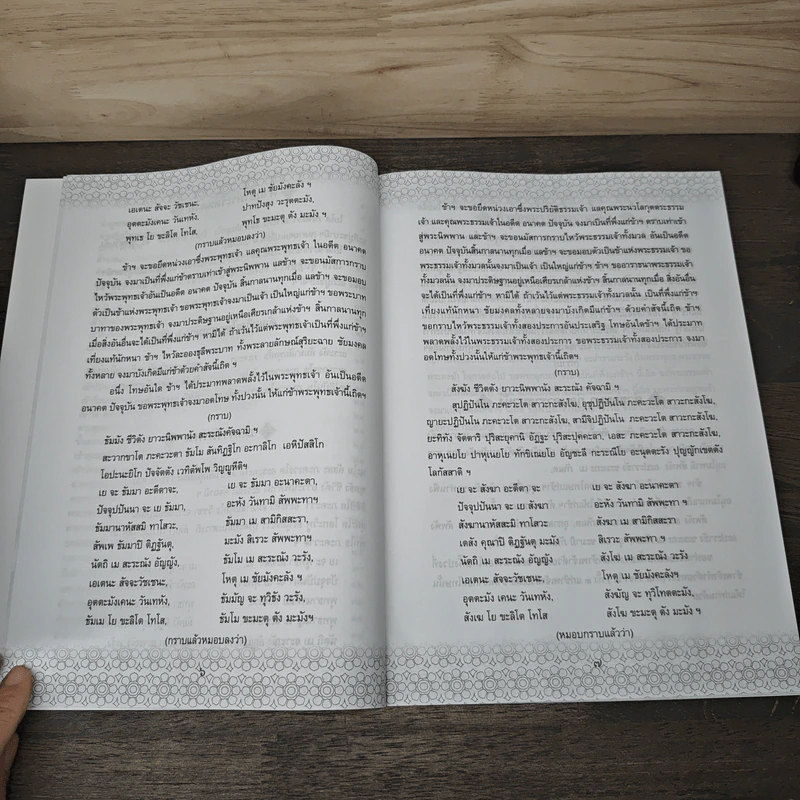 เอเตนะ สัจจะ วัชเชนะ, โหตุ เม ชัยมังคะลัง ฯ
อุตตะมังเคนะ วันเทหัง, ปาทปังสุง วะรุตตะมัง,
พุทเธ โย ขะลิโต โทโส, พุทโธ ขะมะตุ ตัง มะมัง ฯ
(กราบแล้วหมอบลงว่า)
ข้าฯ จะขอยึดหน่วงเอาซึ่งพระพุทธเจ้า แลคุณพระพุทธเจ้า ในอดีต อนาคต
ปัจจุบัน จงมาเป็นที่พึ่งแก่ข้าตราบเท่าเข้าสู่พระนิพพาน แลข้าฯ จะขอนมัสการกราบ
ไหว้พระพุทธเจ้าอันเป็นอดีต อนาคต ปัจจุบัน สิ้นกาลนานทุกเมื่อ แลข้าฯ จะขอมอบ
ตัวเป็นข้าแห่งพระพุทธเจ้า ขอพระพุทธเจ้าจงมาเป็นเจ้า เป็นใหญ่แก่ข้าฯ ขอพระบาท
บาทาของพระพุทธเจ้า จงมาประดิษฐานอยู่เหนือเศียรเกล้าแห่งข้าฯ สิ้นกาลนานทุก
เมื่อสิ่งอันอื่นจะได้เป็นที่พึ่งแก่ข้าฯ หามิได้ ถ้าเว้นไว้แต่พระพุทธเจ้าเป็นที่พึ่งแก่ข้าฯ
เที่ยงแท้นักหนา ข้าฯ ไหว้ละอองธุลีพระบาท ทั้งพระลายลักษณ์สุริยะฉาย ชัยมงคล
ทั้งหลาย จงมาบังเกิดมีแก่ข้าด้วยคำสัจนี้เถิด ฯ
อนึ่ง โทษอันใด ข้าฯ ได้ประมาทพลาดพลั้งไว้ในพระพุทธเจ้า อันเป็นอดีต
อนาคต ปัจจุบัน ขอพระพุทธเจ้าจงมาอดโทษ ทั้งปวงนั้น ให้แก่ข้าพระพุทธเจ้านี้เถิดฯ
(กราบ)
ธัมมัง ชีวิตัง ยาวะนิพพานัง สะระณังคัจฉามิ ฯ
สะวากขาโต ภะคะวะตา ธัมโม สันทิฏฐิโก อะกาลิโก เอหิปัสสิโก
โอปะนะยิโก ปัจจัตตัง เวทิตัพโพ วิญญูหีติฯ
เย จะ ธัมมา อะตีตาจะ, เย จะ ธัมมา อะนาคะตา,
ปัจจุปปันนา จะ เย ธัมมา, อะหัง วันทามิ สัพพะทาฯ
ธัมมานาหัสสมิ ทาโสวะ, ธัมมา เม สามิกิสสะรา,
สัพเพ ธัมมาปิ ติฏฐันตุ, มะมัง สิเรวะ สัพพะทาฯ
นัตถิ เม สะระณัง อัญญัง, ธัมโม เม สะระณัง วะรัง,
เอเตนะ สัจจะวัชเชนะ, โหตุ เม ชัยมังคะลัง ฯ
อุตตะมังเคนะ วันเทหัง, ธัมมัญ จะ ทุวิธัง วะรัง,
ธัมเม โย ขะลิโต โทโส, ธัมโม ขะมะตุ ตัง มะมังฯ
(กราบแล้วหมอบลงว่า)
๖
ข้าฯ จะขอยึดหน่วงเอาซึ่งพระปริยัติธรรมเจ้า แลคุณพระนวโลกุตตระธรรม
เจ้า แลคุณพระธรรมเจ้าในอดีต อนาคต ปัจจุบัน จงมาเป็นที่พึ่งแก่ข้าฯ ตราบเท่าเข้า
สู่พระนิพพาน และข้าฯ จะขอนมัสการกราบไหว้พระธรรมเจ้าทั้งมวล อันเป็นอดีต
อนาคต ปัจจุบันสิ้นกาลนานทุกเมื่อ แลข้าฯ จะขอมอบตัวเป็นข้าแห่งพระธรรมเจ้า ขอ
พระธรรมเจ้าทั้งมวลนั้นจงมาเป็นเจ้า เป็นใหญ่แก่ข้าฯ ข้าฯ ขออาราธนาพระธรรมเจ้า
ทั้งมวลนั้น จงมาประดิษฐานอยู่เหนือเศียรเกล้าแห่งข้าฯ สิ้นกาลนานทุกเมื่อ สิ่งอันอื่น
จะได้เป็นที่พึ่งแก่ข้าฯ หามิได้ ถ้าเว้นไว้แต่พระธรรมเจ้าทั้งมวลนั้น เป็นที่พึ่งแก่ข้าฯ
เที่ยงแท้นักหนา ชัยมงคลทั้งหลายจงมาบังเกิดมีแก่ข้าฯ ด้วยคำสัจนี้เถิด ข้าฯ
ขอกราบไหว้พระธรรมเจ้าทั้งสองประการอันประเสริฐ โทษอันใดข้าฯ ได้ประมาท
พลาดพลั้งไว้ในพระธรรมเจ้าทั้งสองประการ ขอพระธรรมเจ้าทั้งสองประการ จงมา
อดโทษทั้งปวงนั้นให้แก่ข้าพระพุทธเจ้านี้เถิดฯ
(กราบ)
สังฆัง ชีวิตัง ยาวะนิพพานัง สะระณัง คัจฉามิ ฯ
สุปฏิปันโน ภะคะวะโต สาวะกะสังโฆ, อุชุปฏิปันโน ภะคะวะโต สาวะกะสังโฆ,
ญายะปฏิปันโน ภะคะวะโต สาวะกะสังโฆ, สามีจิปฏิปันโน ภะคะวะโต สาวะกะสังโฆ,
ยะทิทัง จัตตาริ ปุริสะยุคานิ อัฏฐะ ปุริสะปุคคะลา, เอสะ ภะคะวะโต สาวะกะสังโฆ,
อาหุเนยโย ปาหุเนยโย ทักขิเณยโย อัญชะลี กะระณีโย อะนุตตะรัง ปุญญักเขตตัง
โลกัสสาติ ฯ
เย จะ สังฆา อะตีตา จะ เย จะ สังฆา อะนาคะตา
ปัจจุปปันนา จะ เย สังฆา อะหัง วันทามิ สัพพะทาฯ
สังฆานาหัสสมิ ทาโสวะ สังฆา เม สามิกิสสะรา
เตสัง คุณาปิ ติฏฐันตุ มะมัง สิเรวะ สัพพะทา ฯ
นัตถิ เม สะระณัง อัญญัง สังโฆ เม สะระณัง วะรัง
เอเตนะ สัจจะวัชเชนะ, โหตุ เม ชัยมังคะลังฯ
อุตตะมัง เคนะ วันเทหัง, สังฆัญ จะ ทุวิโทตตะมัง,
สังเฆ โย ขะลิโต โทโส สังโฆ ขะมะตุ ตัง มะมัง ฯ
(หมอบกราบแล้วว่า)
๗